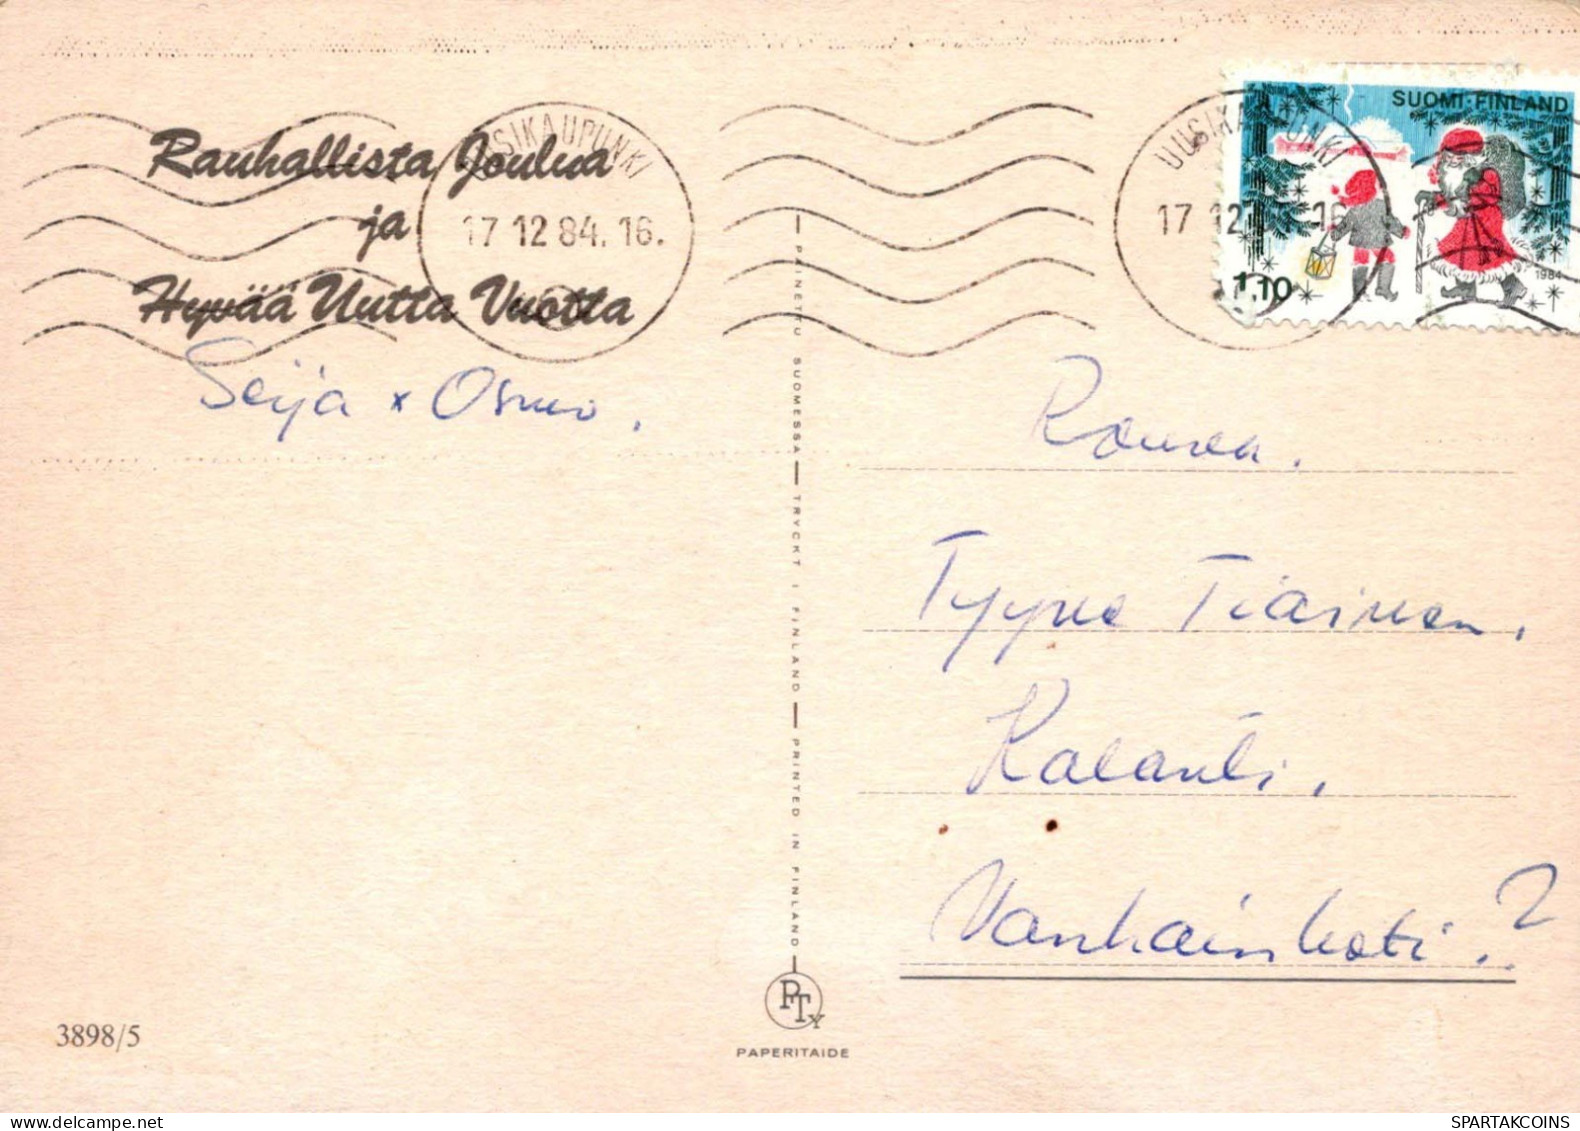 Rauhallista Joulua
ja
Hyvää Uutta Vuotta
Seija x Osmo.
UUSIKAUPUNKI
17 12 84. 16.
UUSIKAUPUNKI
17 12 16
SUOMI-FINLAND
1984
1,10
PAINETTU SUOMESSA — TRYCKT I FINLAND — PRINTED IN FINLAND
Rouva.
Tyyne Tiainen.
Kalanti.
Vanhainkoti.?
3898/5
PTY
PAPERITAIDE
SPARTAKCOINS